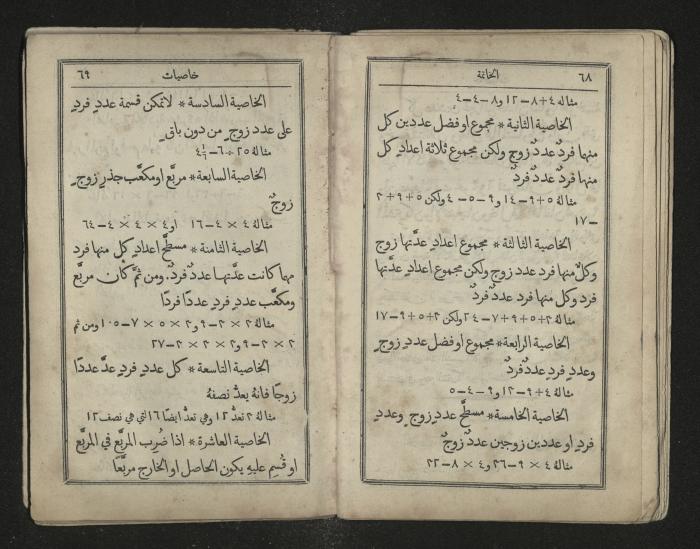 ٦٨
الخاتمة
مثاله ٤+٨-١٢ و٨-٤-٤
الخاصية الثانية * مجموع او فضل عددين كل
منها فردٌ عددٌ زوج ولكن مجموع ثلاثة اعدادٍ كل
منها فردٌ عددٌ فردٌ
مثاله ٥+٩-١٤ و٩-٥-٤ ولكن ٥+٩+٣
-١٧
الخاصية الثالثة * مجموع اعدادٍ عدَّتها زوج
وكلٌّ منها فرد عدد زوج ولكن مجموع اعدادٍ عدَّتها
فرد وكل منها فرد عددٌ فردٌ
مثاله ٣+٥+٩+٧-٢٤ ولكن ٣+٥+٩-١٧
الخاصية الرابعة * مجموع او فضل عدد زوجٍ
وعددٍ فردٍ عددٌ فردٌ
مثاله ٤+٩-١٣ و٩-٤-٥
الخاصية الخامسة * مسطَّح عددٍ زوجٍ وعددٍ
فردٍ او عددين زوجين عددٌ زوجٌ
مثاله ٤×٩-٣٦ و٤×٨-٣٢
خاصيات
٦٩
الخاصية السادسة * لا تمكن قسمة عددٍ فردٍ
على عددٍ زوجٍ من دون باقٍ
مثاله ٢٥÷٦-٤
الخاصية السابعة * مربَّع او مكعَّب جذرٍ زوجٍ
زوجٌ
مثاله ٤×٤-١٦ او ٤×٤×٤-٦٤
الخاصية الثامنة * مسطَّح اعدادٍ كل منها فرد
مهما كانت عدَّتها عددٌ فردٌ. ومن ثمَّ كان مربَّع
ومكعَّب عددٍ فردٍ عددًا فردًا
مثاله ٣×٣-٩ و٣×٥×٧-١٠٥ ومن ثم
٣×٣-٩ و٣×٣×٣-٢٧
الخاصية التاسعة * كل عددٍ فردٍ عدَّ عددًا
زوجًا فانهُ يعدُّ نصفهُ
مثاله ٣ تعدُّ ١٢ وهي تعدُّ ايضًا ٦ التي هي نصف ١٢
الخاصية العاشرة * اذا ضُرِب المربَّع في المربَّع
او قُسِم عليهِ يكون الحاصل او الخارج مربَّعًا